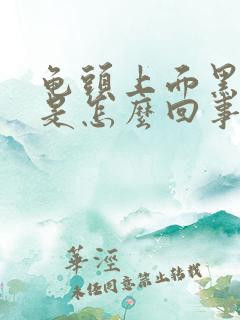 龟頭上而黑
是怎麼回事
華涇
未经同意禁止转载